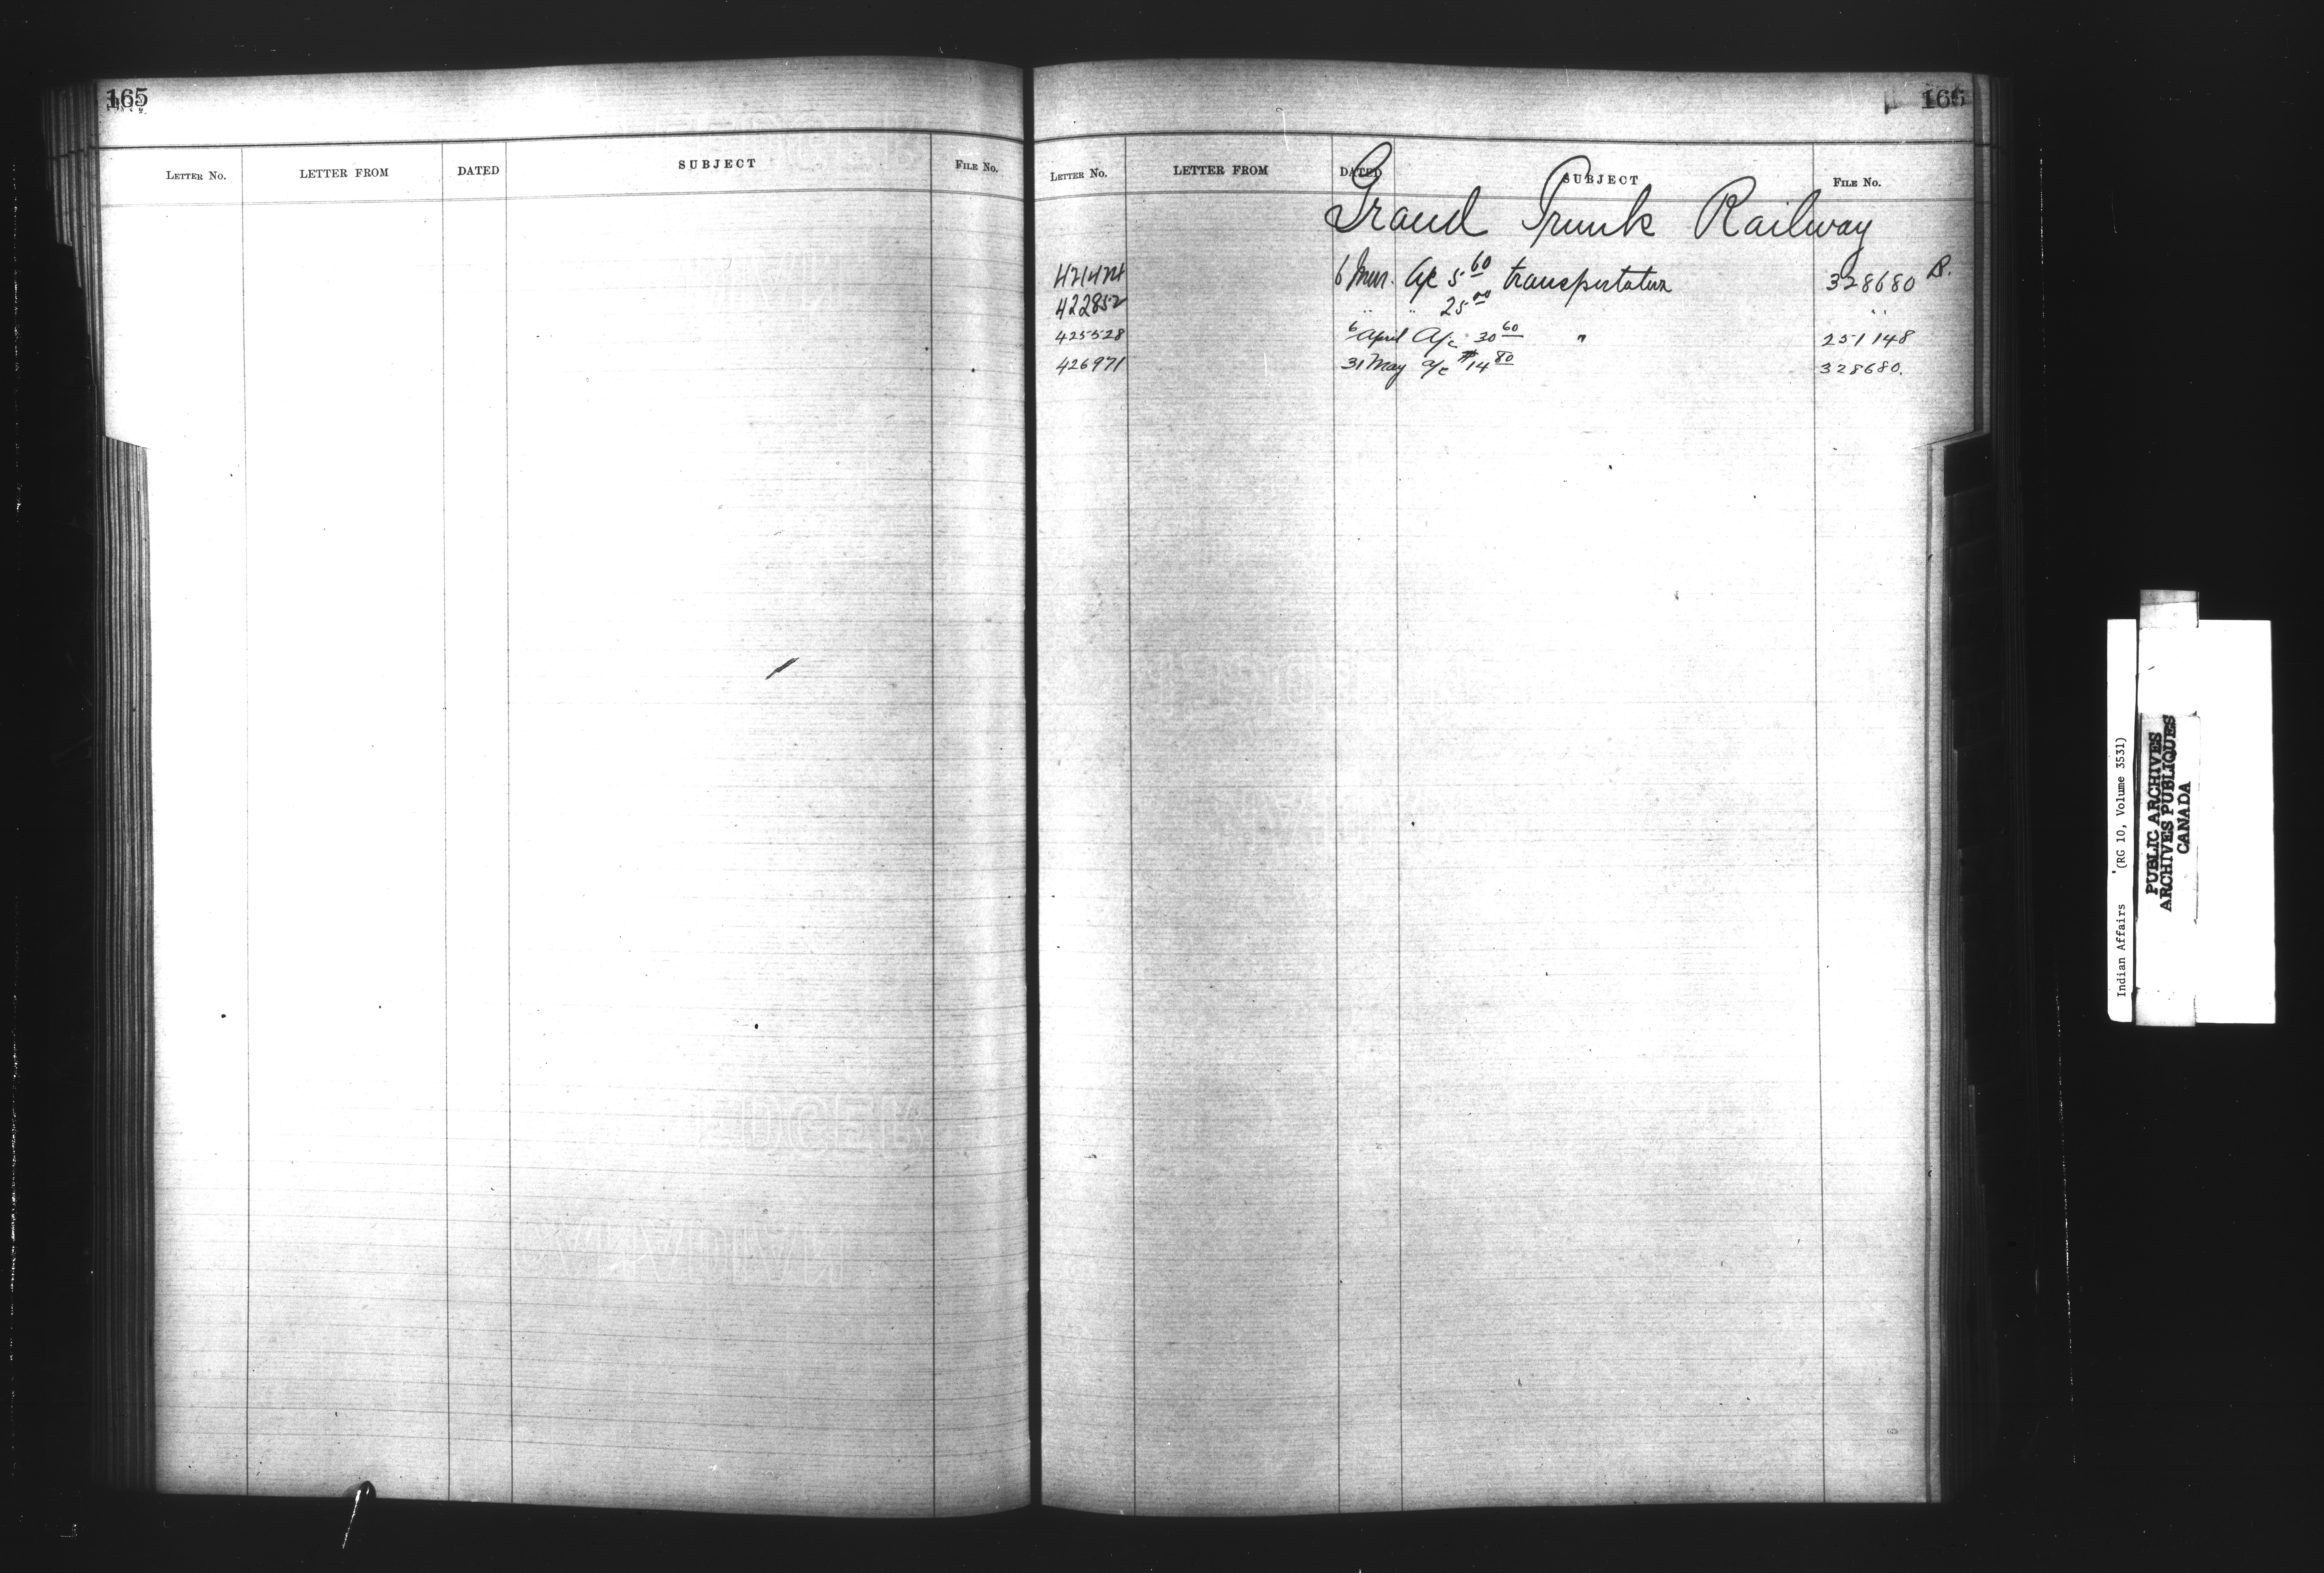 165
LETTER No. LETTER FROM DATED SUBJECT FILE No.
165
LETTER No. LETTER FROM DATED SUBJECT FILE No.
Grand Trunk Railway
6 Mar. a/c 5.60 transportation 328680 B.
422852 " " 25.00 " "
425528 6 April A/c 30 60 " 251148
426971 31 May a/c $14 80 328680.
Indian Affairs (RG 10, Volume 3531)
PUBLIC ARCHIVES
ARCHIVES PUBLIQUES
CANADA